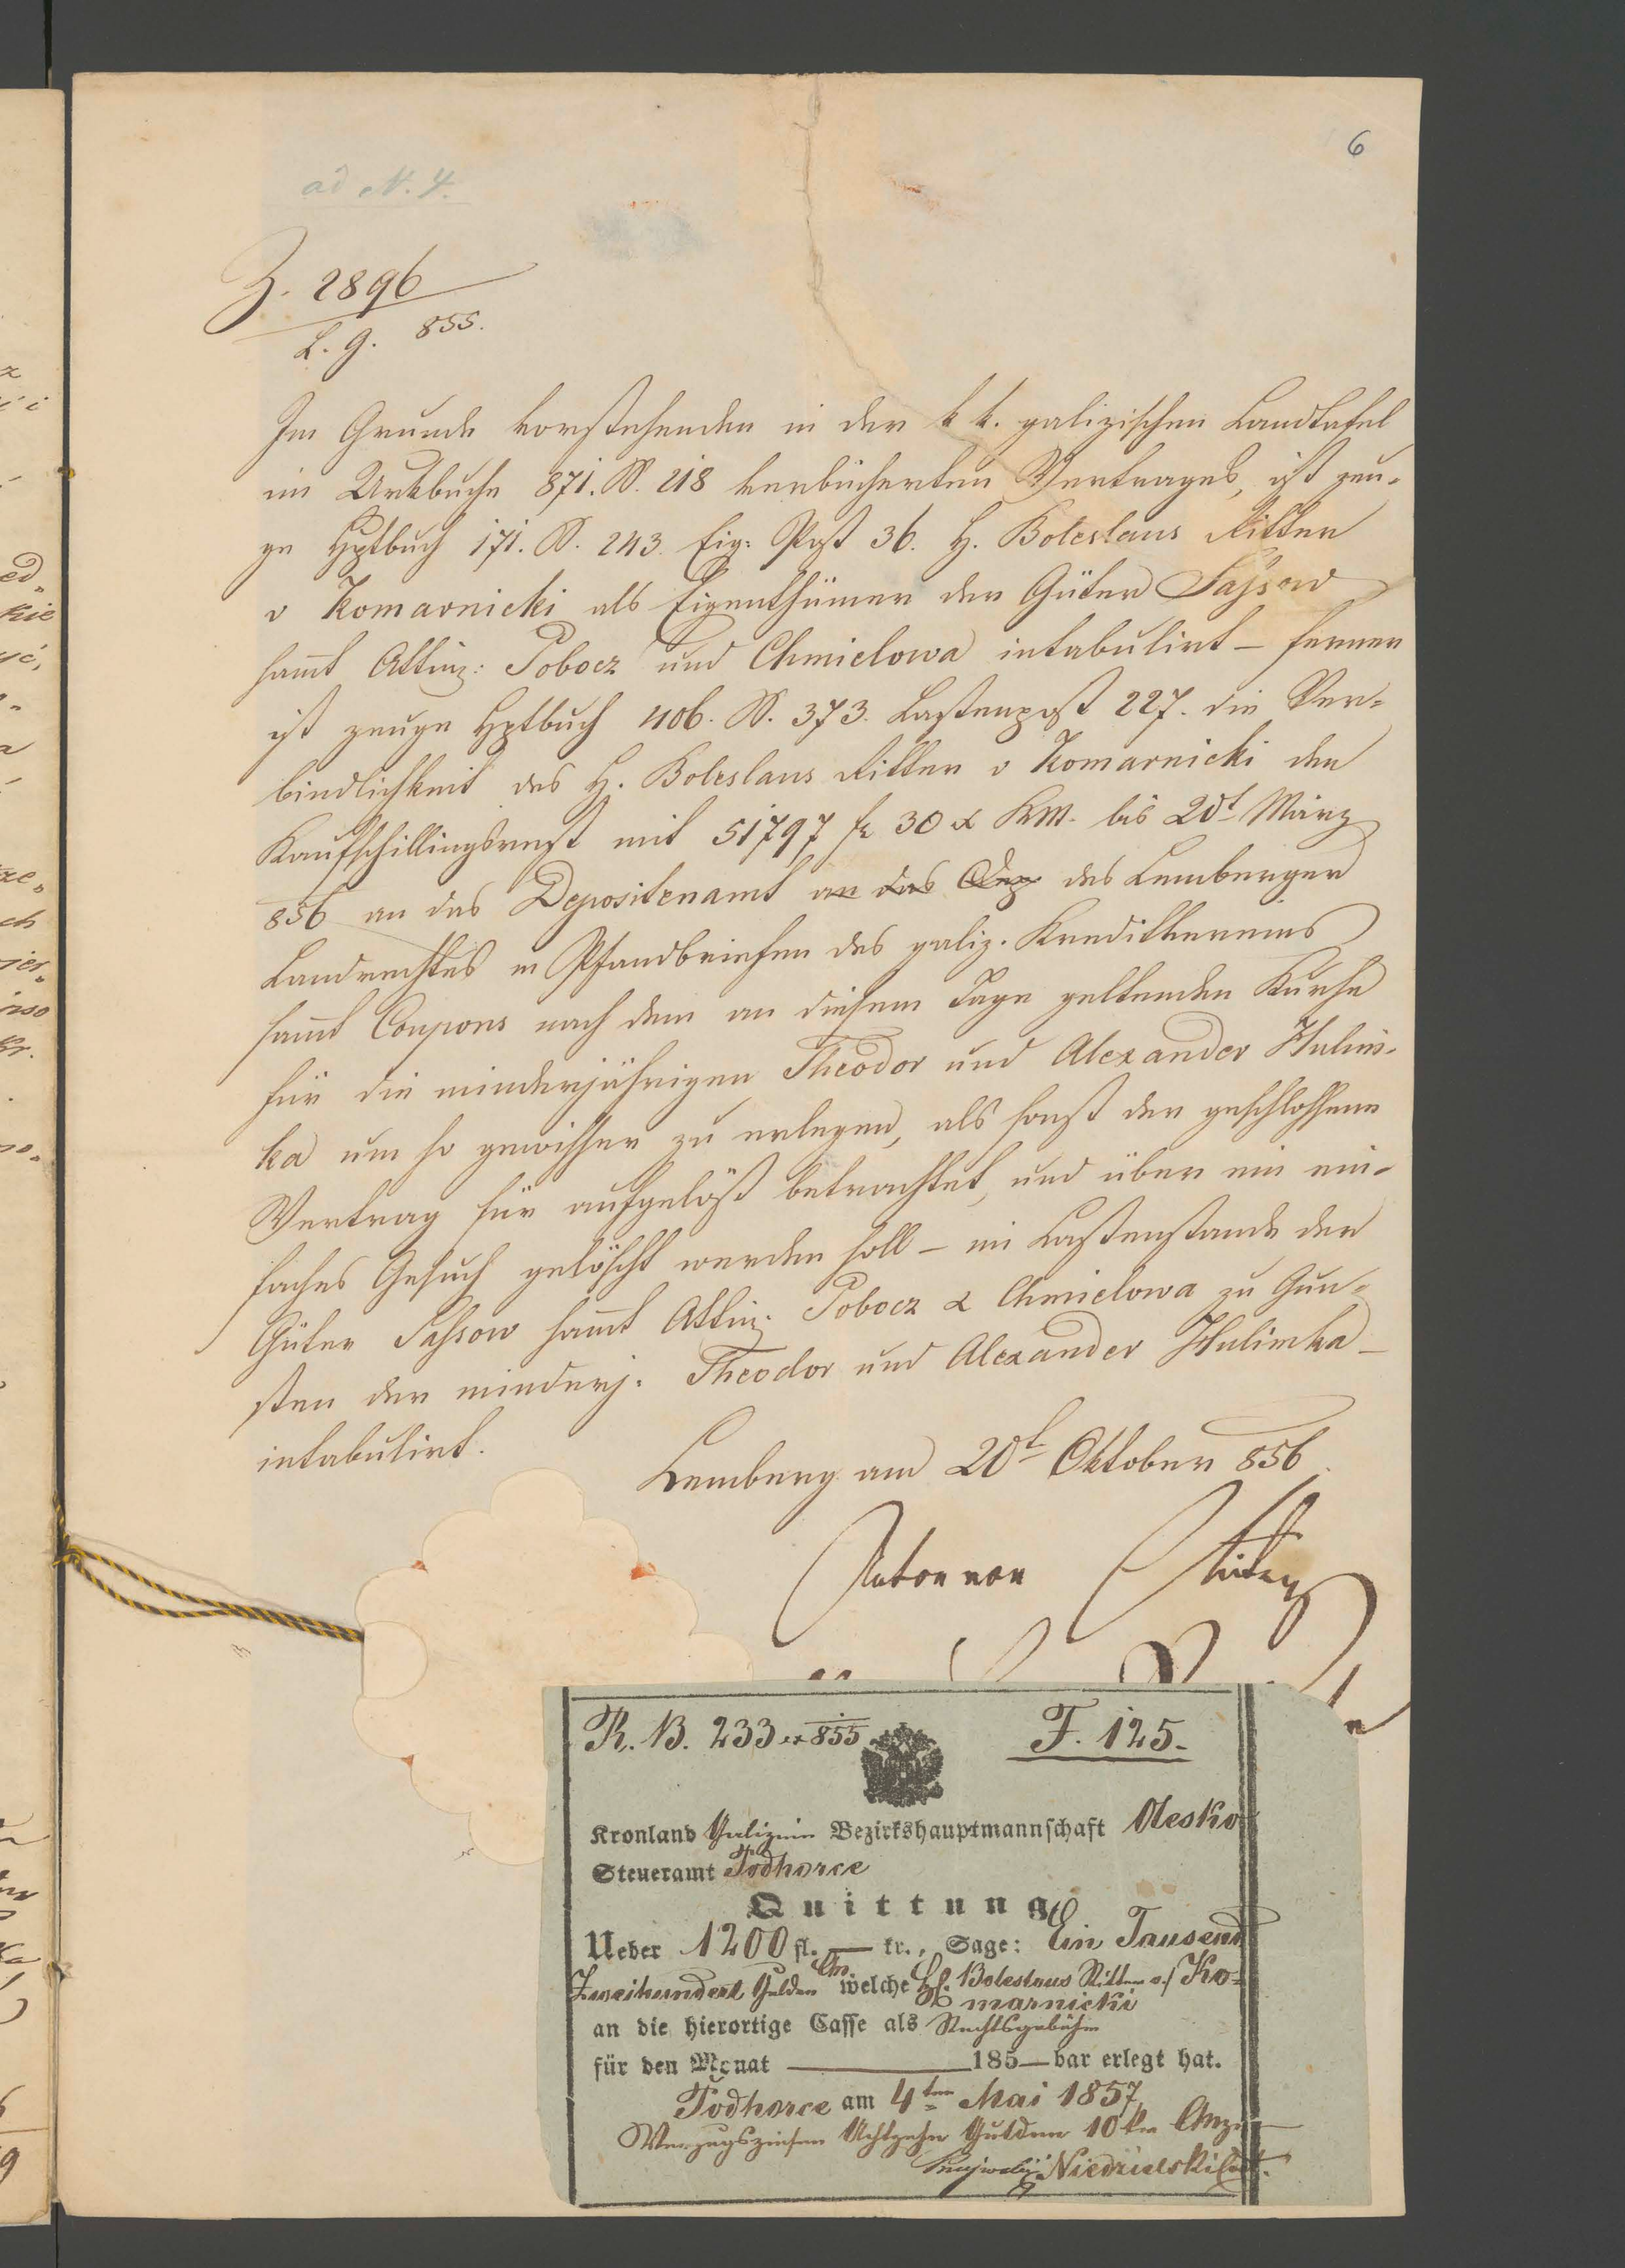 6
ad N. 4.
Z. 2896
L. g. 855.
Im Grunde vorstehenden in der k k. galizischen Landtafel
im Urkbuche 871. S. 218 verbücherten Vertrages, ist zeu-
ge Hptbuch 171. S. 243. Eig: Post 36. H. Boleslaus Ritter
v Komarnicki als Eigenthümer der Güter Sassow
sammt Attinz: Pobocz und Chmielowa intabulirt – ferner
ist zeuge Hptbuch 406. S. 373. Lastenpost 227. die Ver-
bindlichkeit des H. Boleslaus Ritter v Komarnicki den
Kaufschillingsrest mit 51797 fr 30 x KM. bis 20t März
856 an das Depositenamt an das Dep des Lemberger
Landrechtes in Pfandbriefen des galiz. Kreditvereins
sammt Coupons nach dem an diesem Tage geltenden Kurse
für die minderjährigen Theodor und Alexander Hulim-
ka um so gewisser zu erlegen, als sonst der geschlossene
Vertrag für aufgelöst betrachtet, und über ein ein-
faches Gesuch gelöscht werden soll – im Lastenstande der
Güter Sassow sammt Attinz. Pobocz & Chmielowa zu Gun-
sten der minderj. Theodor und Alexander Hulimka –
intabulirt.
Lemberg am 20t Oktober 856.
Anton von
R. B. 233 ex 855
F. 125.
Kronland Galizien Bezirkshauptmannschaft Olesko
Steueramt Podhorce
Quittung
Ueber 1200 fl. — kr., Sage: Ein Tausend
Zweihundert Gulden CM. welche H. Boleslaus Ritter v. Ko-
marnicki
an die hierortige Casse als Rechtsgebühr
für den Monat 185— bar erlegt hat.
Podhorce am 4ten Mai 1857
Verzugszinsen Achtzehn Gulden 10 kr CMze
Niedzielski